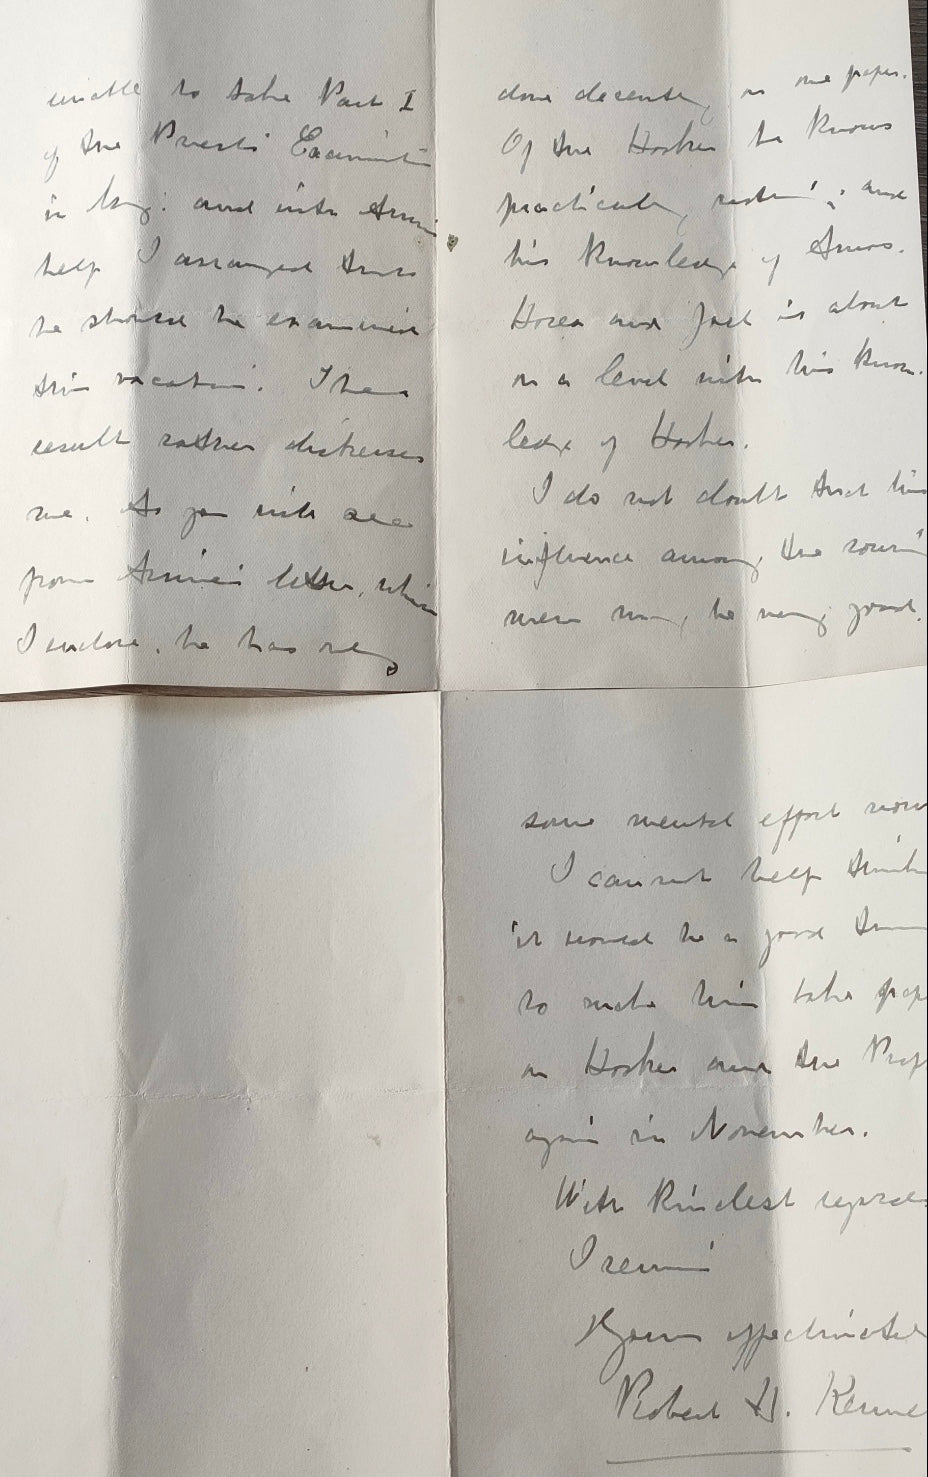 unable to take Part I
of the Priest's Examination
in May: and with
help I arranged that
he should be examined
this vacation. The
result rather distresses
me. As you will see
from letter, which
I enclose, he has only
done decently in one paper.
Of the Hooker he knows
practically nothing; and
his knowledge of Amos.
Hosea and Joel is about
on a level with his know-
ledge of Hooker.
I do not doubt that his
influence among the young
men may be very good.
some mental effort now
I cannot help think
it would be a good thin
to make him take pap
on Hooker and the Prop
again in November.
With kindest regards
I remain
Yours affectionatel
Robert H. Kenne